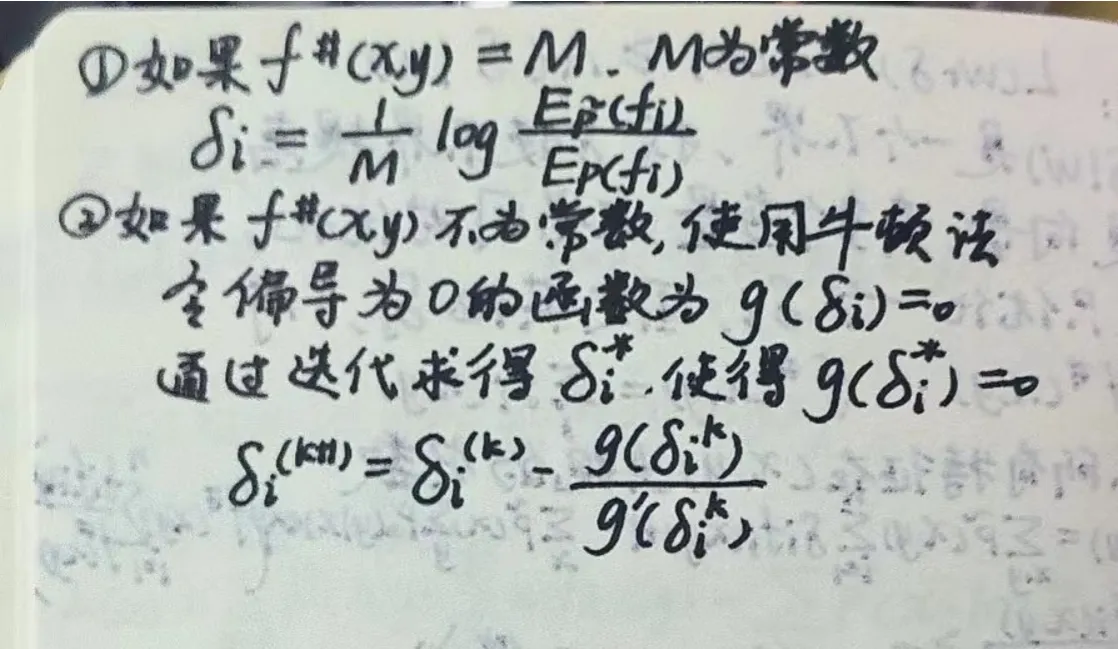 ①如果 f#(x,y) = M. M为常数
δi = 1/M log Ep̃(fi)/Ep(fi)
②如果 f#(x,y) 不为常数, 使用牛顿法
令偏导为0的函数为 g(δi)=0
通过迭代求得 δi*. 使得 g(δi*)=0
δi(k+1) = δi(k) - g(δi k)/g'(δi k)